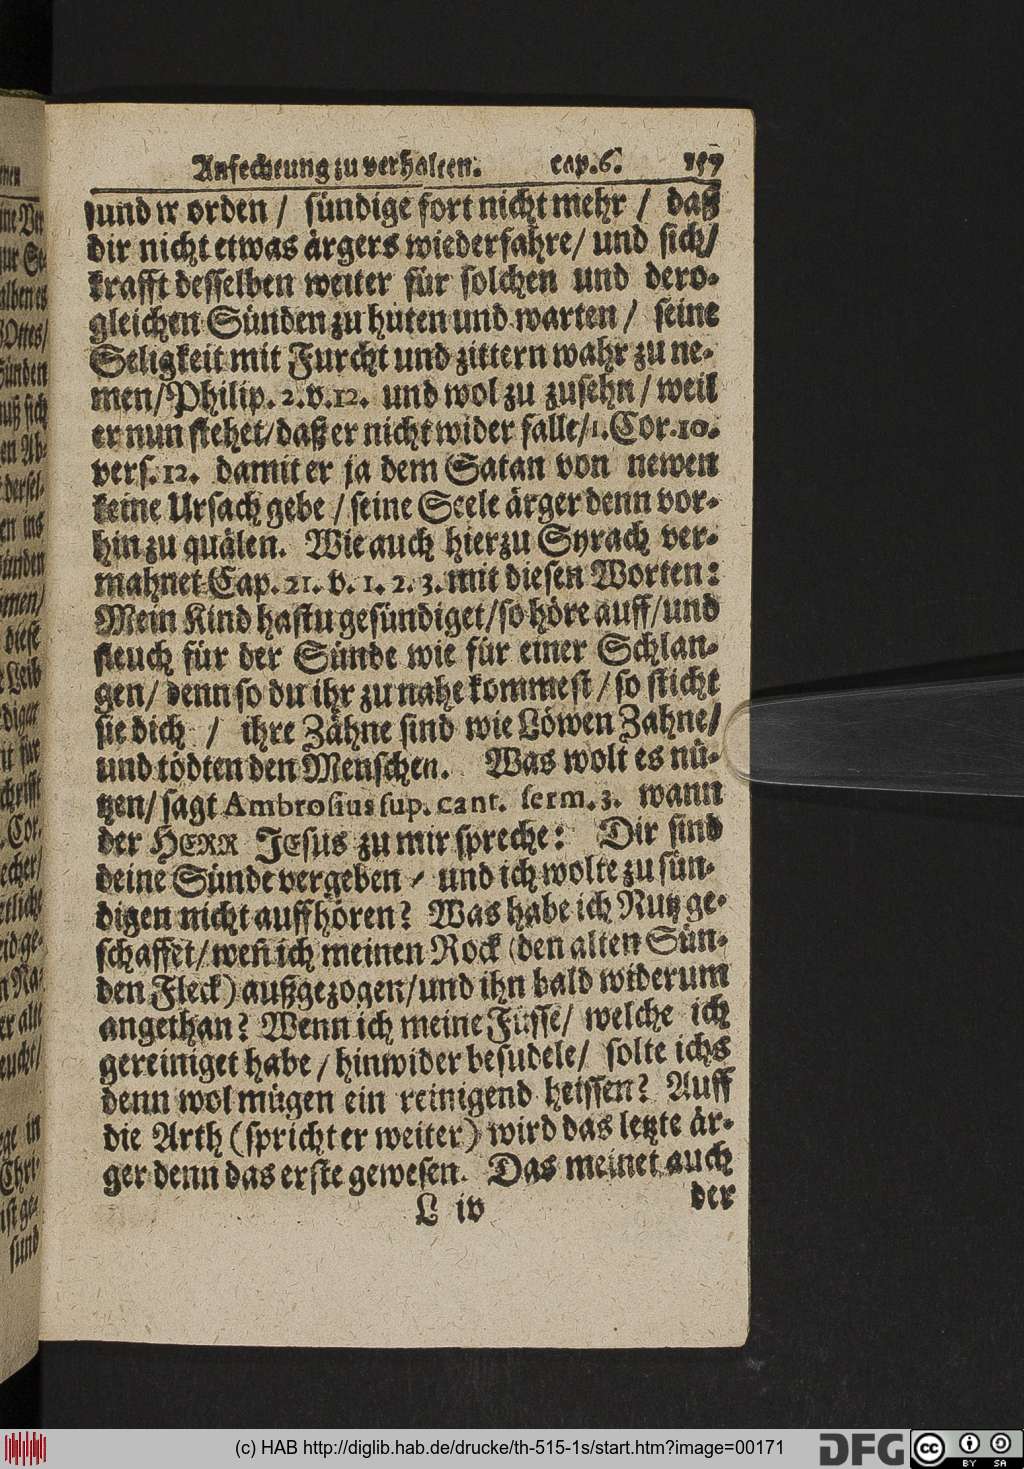 Anfechtung zu verhalten. cap. 6. 157
sund worden / sündige fort nicht mehr / daß
dir nicht etwas ärgers wiederfahre / und sich /
krafft desselben weiter für solchen und dero-
gleichen Sünden zu hüten und warten / seine
Seligkeit mit Furcht und zittern wahr zu ne-
men / Philip. 2. v. 12. und wol zu zusehn / weil
er nun stehet / daß er nicht wider falle / 1. Cor. 10.
vers. 12. damit er ja dem Satan von newen
keine Ursach gebe / seine Seele ärger denn vor-
hin zu quälen. Wie auch hierzu Syrach ver-
mahnet Cap. 21. v. 1. 2. 3. mit diesen Worten:
Mein Kind hastu gesündiget / so höre auff / und
fleuch für der Sünde wie für einer Schlan-
gen / denn so du ihr zu nahe kommest / so sticht
sie dich / ihre Zähne sind wie Löwen Zähne /
und tödten den Menschen. Was wolt es nü-
tzen / sagt Ambrosius sup. cant. serm. 3. wann
der HERR JEsus zu mir spreche: Dir sind
deine Sünde vergeben / und ich wolte zu sün-
digen nicht auffhören? Was habe ich Nutz ge-
schaffet / weñ ich meinen Rock (den alten Sün-
den Fleck) außgezogen / und ihn bald widerum
angethan? Wenn ich meine Füsse / welche ich
gereiniget habe / hinwider besudele / solte ichs
denn wol mügen ein reinigend heissen? Auff
die Arth (spricht er weiter) wird das letzte är-
ger denn das erste gewesen. Das meinet auch
L iv der
(c) HAB http://diglib.hab.de/drucke/th-515-1s/start.htm?image=00171
DFG
cc BY SA